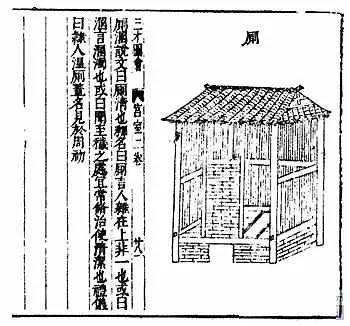 厠
三才圖會 宮室二卷 廿八
厠溷說文曰厠清也釋名曰厠言人雜在上非一也或曰
溷言溷濁也或曰圊至穢之處宜常脩治使清潔也禮儀
曰隸人溷厠蓋名見於周初